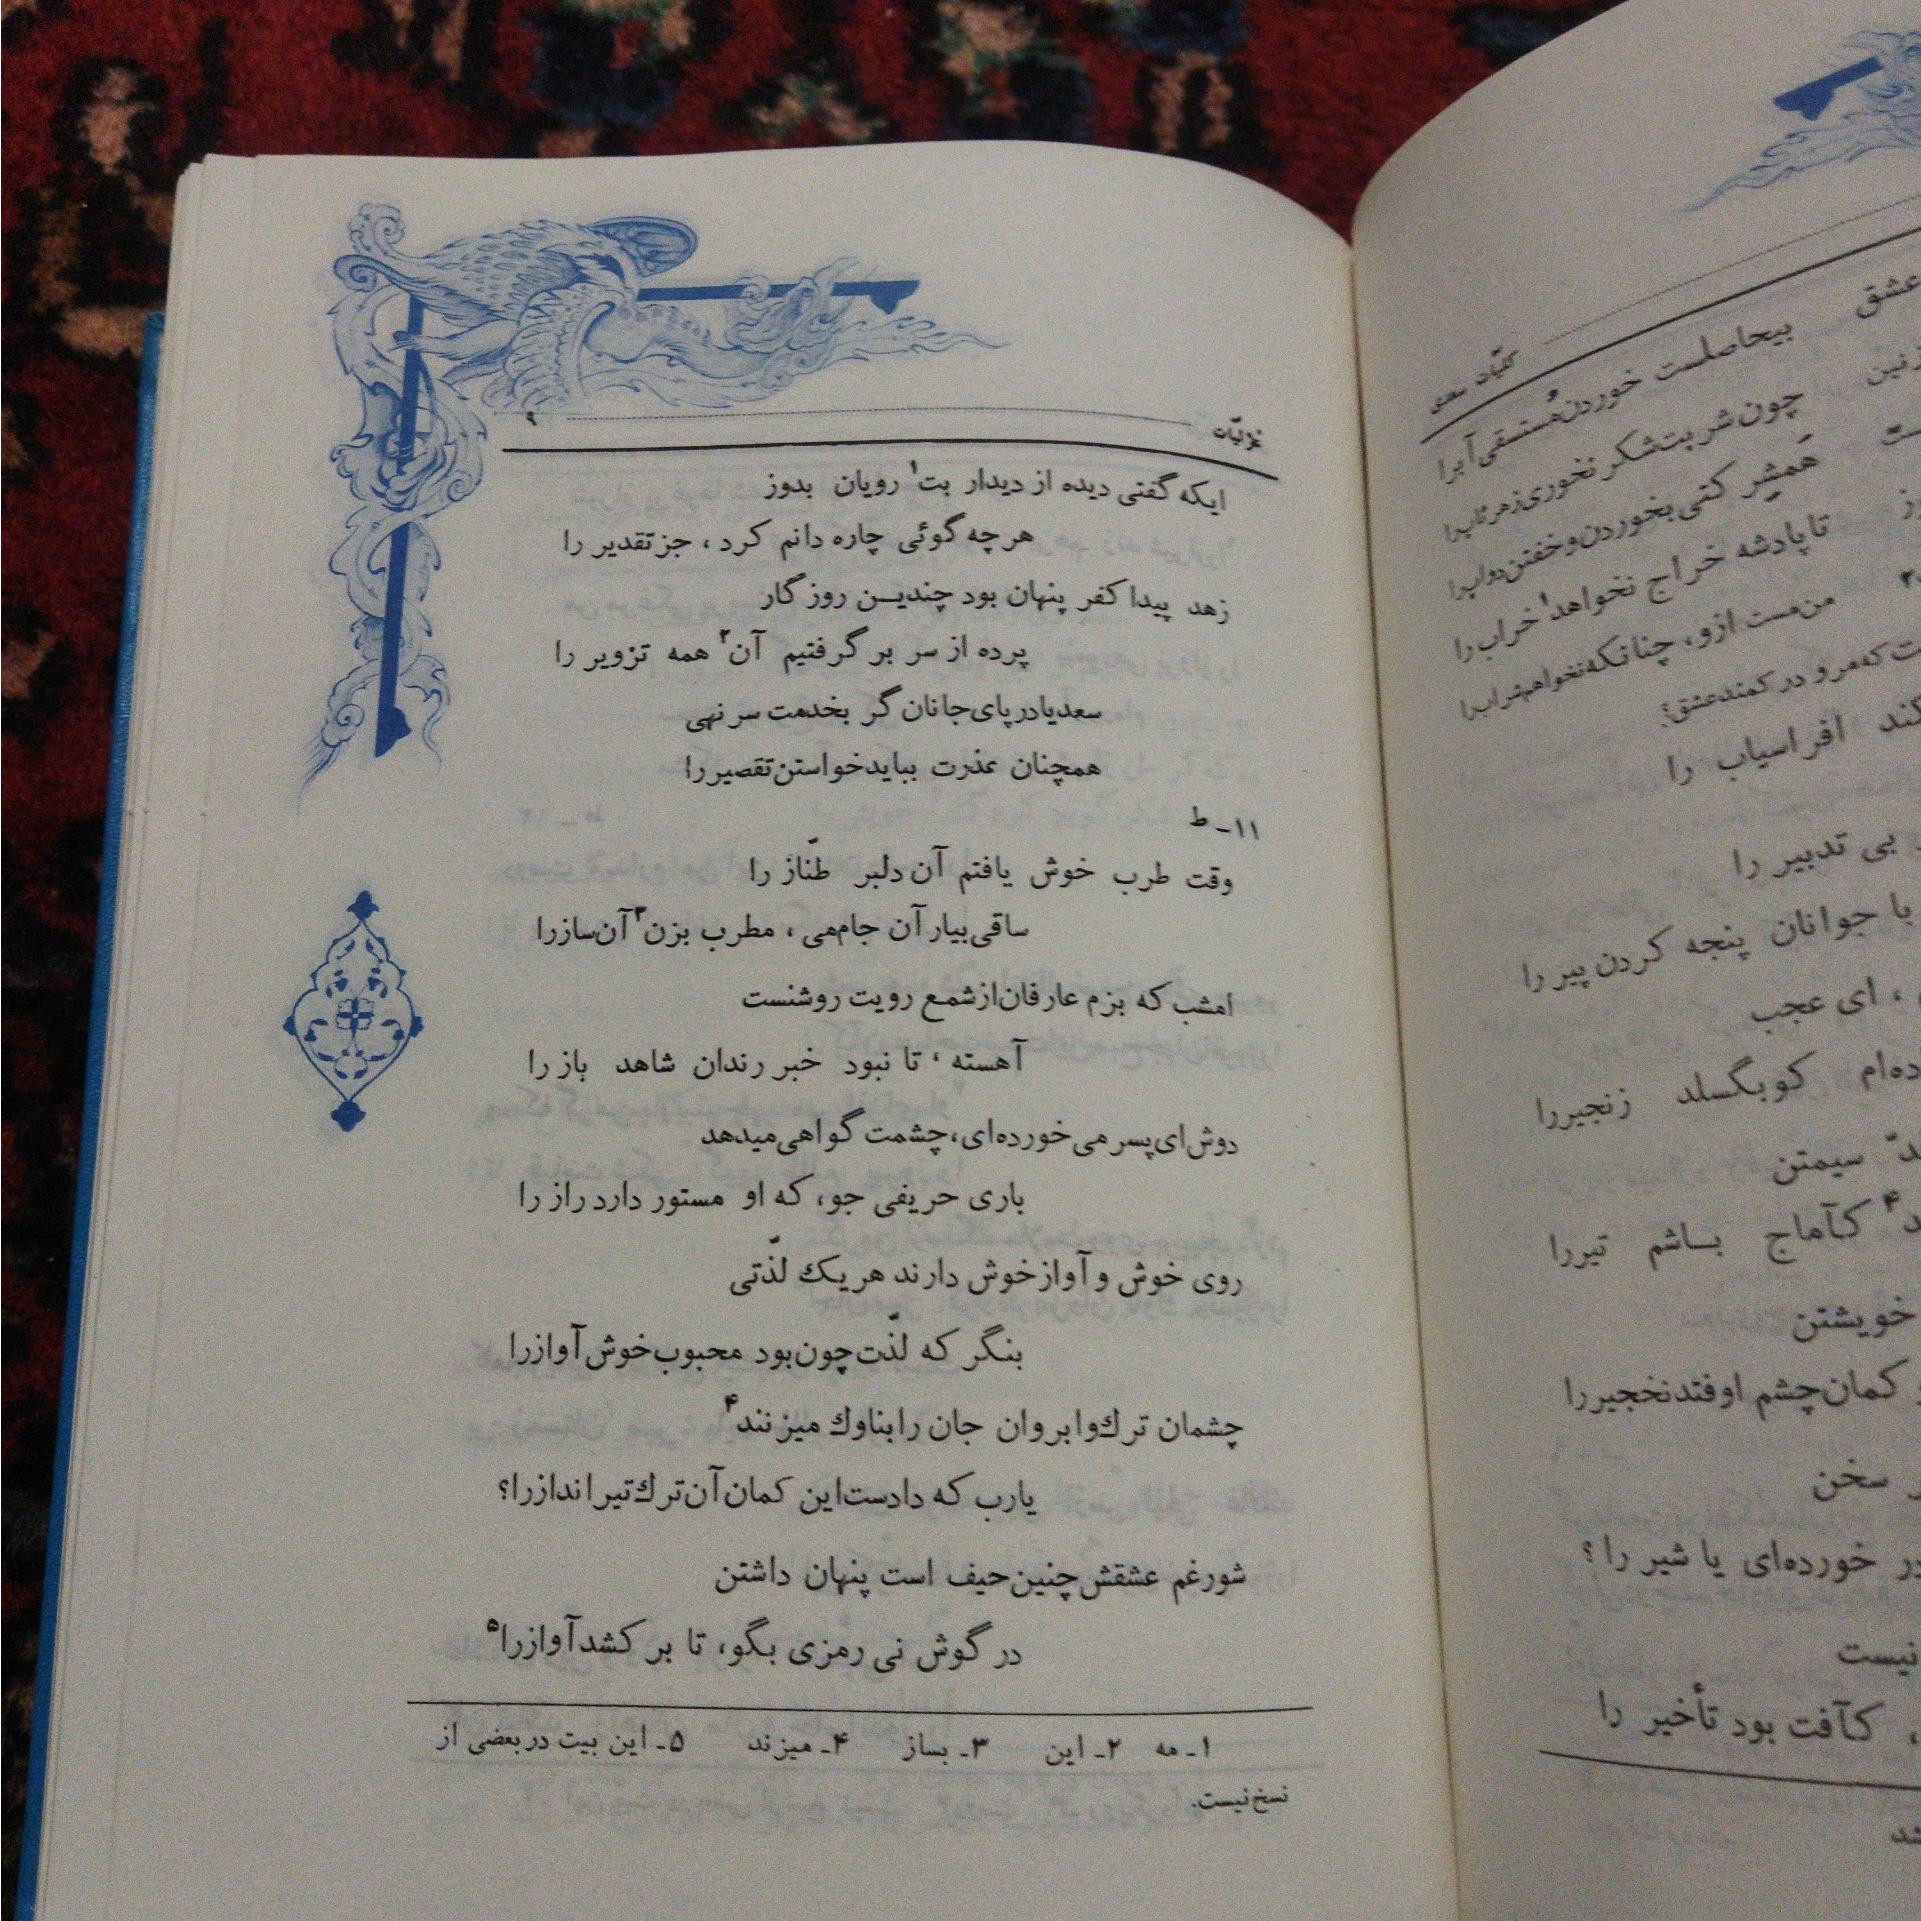 غزلیات ۹
ایکه گفتی دیده از دیدار بت۱ رویان بدوز
هر چه گوئی چاره دانم کرد، جز تقدیر را
زهد پیدا کفر پنهان بود چندین روزگار
پرده از سر بر گرفتیم آن۲ همه تزویر را
سعدیا در پای جانان گر بخدمت سر نهی
همچنان عذرت بباید خواستن تقصیر را
۱۱ـ ط
وقت طرب خوش یافتم آن دلبر طنّاز را
ساقی بیار آن جام می، مطرب بزن۳ آن ساز را
امشب که بزم عارفان از شمع رویت روشنست
آهسته، تا نبود خبر رندان شاهد باز را
دوش ای پسر می خورده‌ای، چشمت گواهی میدهد
باری حریفی جو، که او مستور دارد راز را
روی خوش و آواز خوش دارند هر یک لذّتی
بنگر که لذّت چون بود محبوب خوش آواز را
چشمان ترک و ابروان جان را بناوک میزنند۴
یارب که دادست این کمان آن ترک تیر انداز را؟
شور غم عشقش چنین حیف است پنهان داشتن
در گوش نی رمزی بگو، تا بر کشد آواز را۵
۱ـ مه ۲ـ این ۳ـ بساز ۴ـ میزند ۵ـ این بیت در بعضی از
نسخ نیست.
کلیّات سعدی
عشق
بیحاصلست خوردن مُستسقی آب را
چون شربت شکر نخوری زهر ناب را
هَمشِر کتی بخوردن و خفتن دواب را
تا پادشه خراج نخواهد۱ خراب را
من مست ازو، چنانکه نخواهم شراب را
که مر و در کمند عشق؟
افراسیاب را
بی تدبیر را
با جوانان پنجه کردن پیر را
، ای عجب
کو بگسلد زنجیر را
سیمتن
کآماج باشم تیر را
خویشتن
کمان چشم اوفتد نخجیر را
سخن
خورده‌ای یا شیر را؟
نیست
، کآفت بود تأخیر را